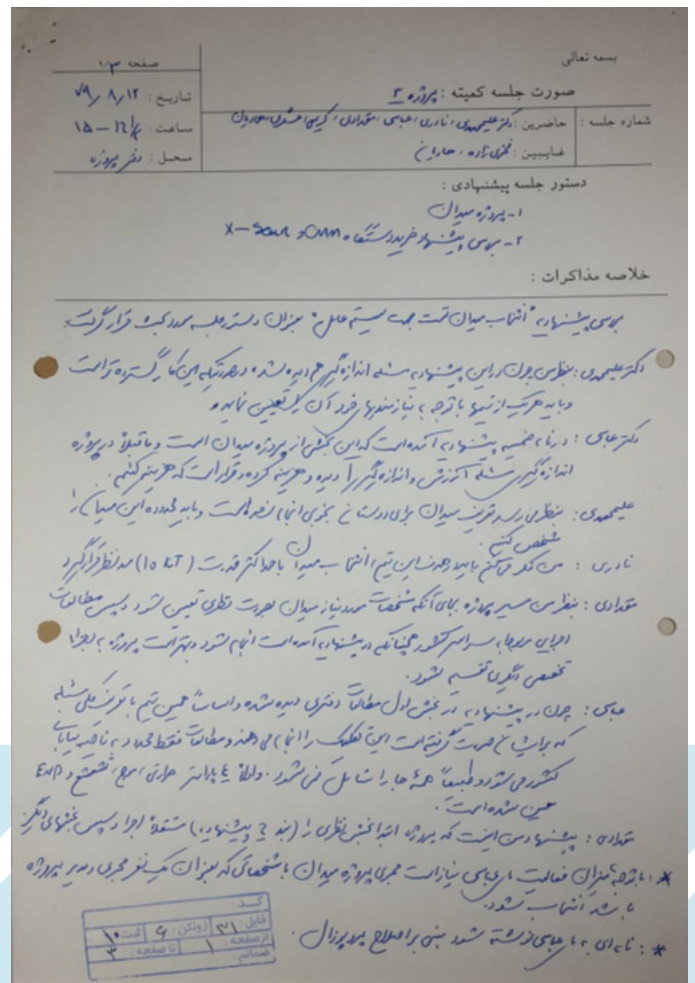 بسمه تعالی
صفحه ۱/۳
صورت جلسه کمیته : پروژه ۳
تاریخ : ۷۹/۸/۱۲
شماره جلسه :
حاضرین : دکتر علیمحمدی، نادری، عباسی، مقدادی، کریمی،
ساعت : ۱۵ –
غایبین : فخری زاده،
محل : دفتر پروژه
دستور جلسه پیشنهادی :
۱- پروژه میدان
۲- بررسی پیشنهاد خرید دستگاه CMM و X-
خلاصه مذاکرات :
بررسی پیشنهادیه "انتخاب میدان تست جهت سیستم عامل" بعنوان دستور جلسه مورد بحث قرار گرفت.
دکتر علیمحمدی : بنظر من چون در این پیشنهادیه مسئله اندازه گیری هم دیده شده و در صورتیکه این کار گسترده تر است
و باید هر یک از تیمها با توجه به نیازمندیهای خود آن را تعیین نماید و
دکتر عباسی : در نامه ضمیمه پیشنهادیه آمده است که این بخشی از پروژه میدان است و ما قبلاً در پروژه
اندازه گیری مسئله آموزش و اندازه گیری را دیده و هزینه کرده و قرار است که هزینه کنیم.
علیمحمدی : بنظر می رسد تعریف میدان برای دوستان بخوبی انجام نشده است و باید محدوده این میدان را
مشخص کنیم.
نادری : من فکر میکنم باید هدف این تیم، انتخاب میدان با حداکثر قدرت (10 KT) مد نظر قرار گیرد
مقدادی : بنظر من مسیر پروژه بجای آنکه مشخصات مورد نیاز میدان بصورت نظری تعیین شود و سپس مطالعات
اجرایی مربوط به سراسر کشور همچنانکه در پیشنهادیه آمده است انجام شود و بهتر است پروژه به اجزاء
تخصصی دیگری تقسیم شود.
عباسی : چون در پیشنهادیه در بخش اول مطالعات دفتری دیده شده و اساساً همین تیم با تعریف کلی مسئله
که برایشان صورت گرفته است این تفکیک را انجام می دهند و مطالعات فقط محدود به ناحیه بیابانی
کشور می شود و طبیعتاً همه جا را شامل نمی شود. پارامتر حرارتی، موج، تشعشع و EMP
معین شده است.
مقدادی : پیشنهاد من اینست که پروژه ابتدا بخش نظری را (بند ۲ پیشنهادیه) مستقلاً اجرا و سپس بخشهای دیگر
* : با توجه به میزان فعالیت عباسی نیاز است مجری پروژه میدان با مشخصاتی که بعنوان یک نفر مجری و مدیر پروژه
باشد انتخاب شود.
* : نامه ای به عباسی نوشته شود مبنی بر اصلاح پروپوزال.
کد :
فایل : ۳۱ زونکن : ۶ ثبت : ۱۰
از صفحه : ۱ تا صفحه : ۳
ضمائم :